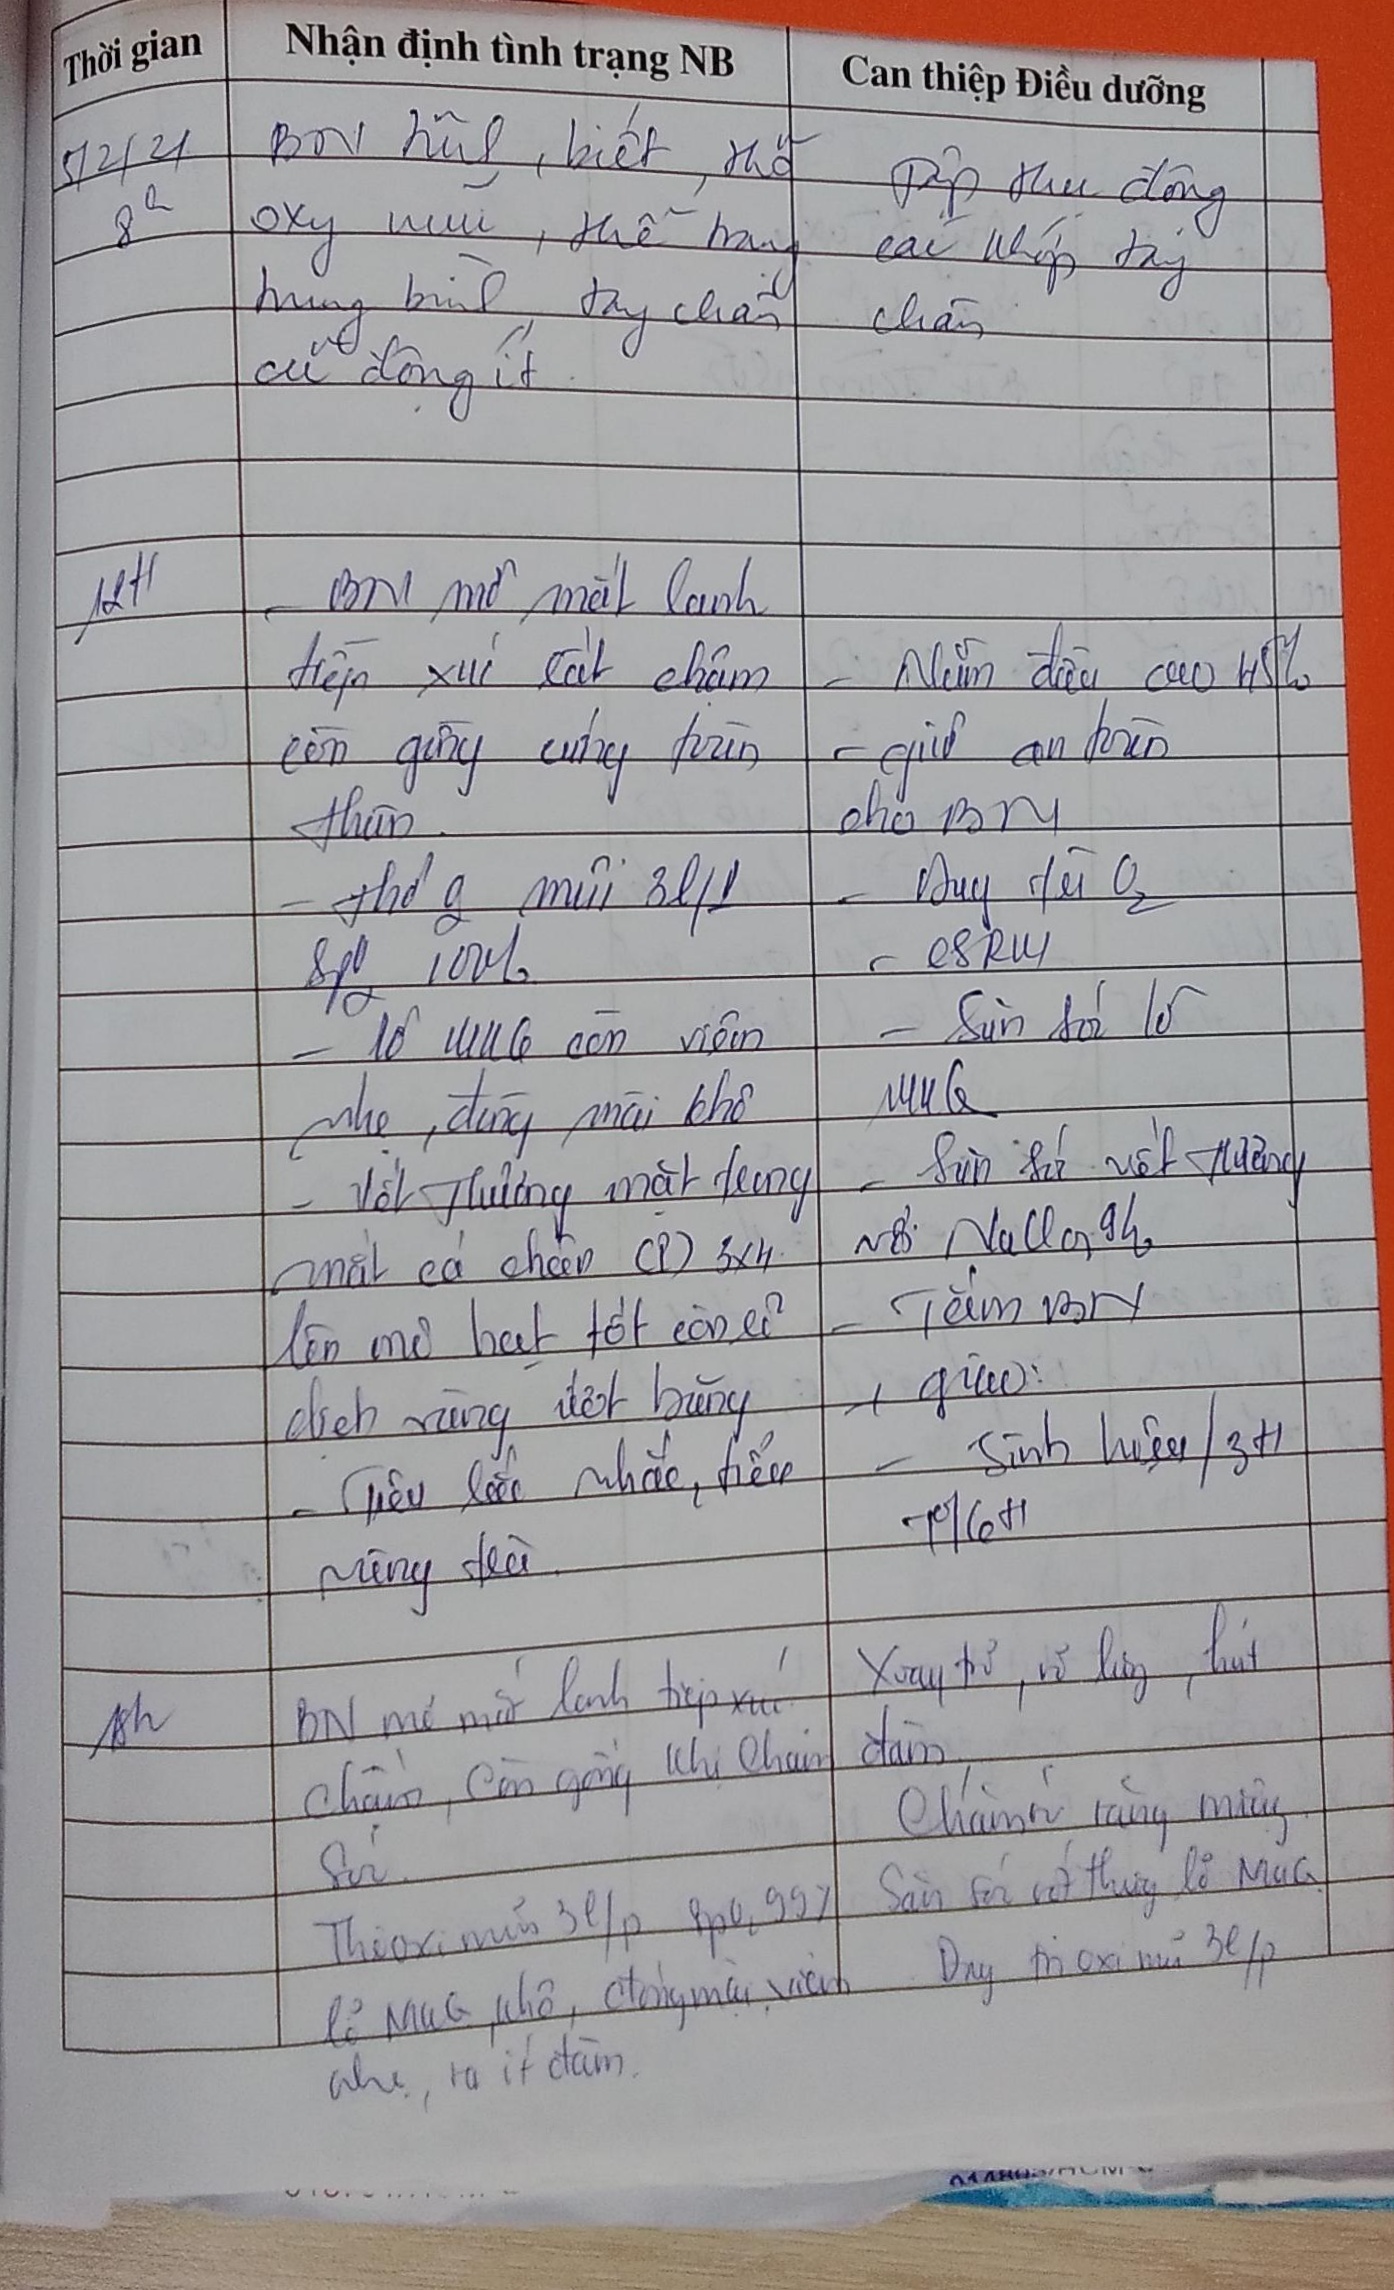 Thời gian
Nhận định tình trạng NB
Can thiệp Điều dưỡng
5/2/21
8h
BN tỉnh, biết, thở
oxy mũi, thể trạng
trung bình, tay chân
cử động ít.
Tập thụ động
các khớp tay
chân
12H
- BN mở mắt lanh
tiếp xúc rất chậm
còn gồng cứng toàn
thân.
- thở mũi 3l/p
SpO2 100%
- lỗ MKQ còn viêm
nhẹ, đường mài khô
- Vết thương mặt trong
mắt cá chân (P) 3x4
lên mô hạt tốt còn ít
dịch vàng ướt băng
- Tiêu lắc nhắc, tiểu
vàng
- Nằm đầu cao 45%
- giữ an toàn
cho BN
- Duy trì O2
- CSRM
- Săn sóc lỗ
MKQ
- Săn sóc vết thương
NaCl 0,9%
- Tắm BN
+ giao:
- Sinh hiệu/3H
T°/6H
18h
BN mở mắt lanh tiếp xúc
chậm, còn gồng khi chăm
sóc.
Thở oxi mũi 3l/p SpO2 99%
lỗ MKQ khô, đường mài viêm
nhẹ, ra ít đàm.
Xoay trở, vỗ lưng, hút
đàm
Chăm sóc răng miệng
Săn sóc vết thương lỗ MKQ
Duy trì oxi mũi 3l/p